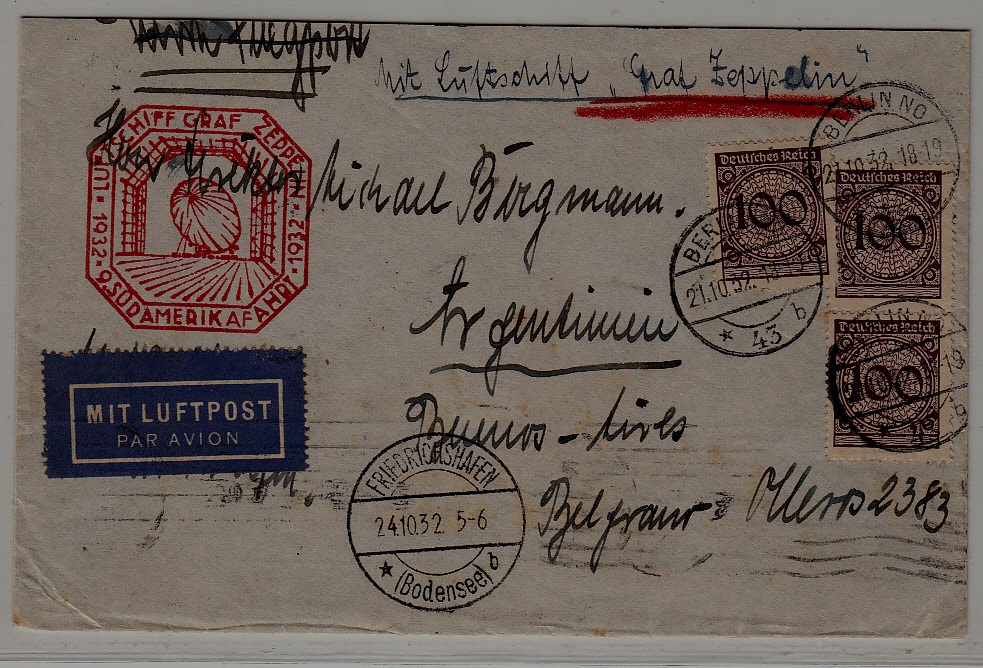 Mit Luftschiff „Graf Zeppelin“
LUFTSCHIFF GRAF ZEPPELIN
1932 · 1932
9. SÜDAMERIKAFAHRT
Herrn
Michael Bergmann.
Argentinien
Buenos-Aires
Belgrano Olleros 2383
MIT LUFTPOST
PAR AVION
BERLIN NO
21.10.32.18-19
Deutsches Reich
100
Deutsches Reich
100
Deutsches Reich
100
BER
21.10.32.
* 43 b
FRIEDRICHSHAFEN
24.10.32. 5-6
* (Bodensee) b